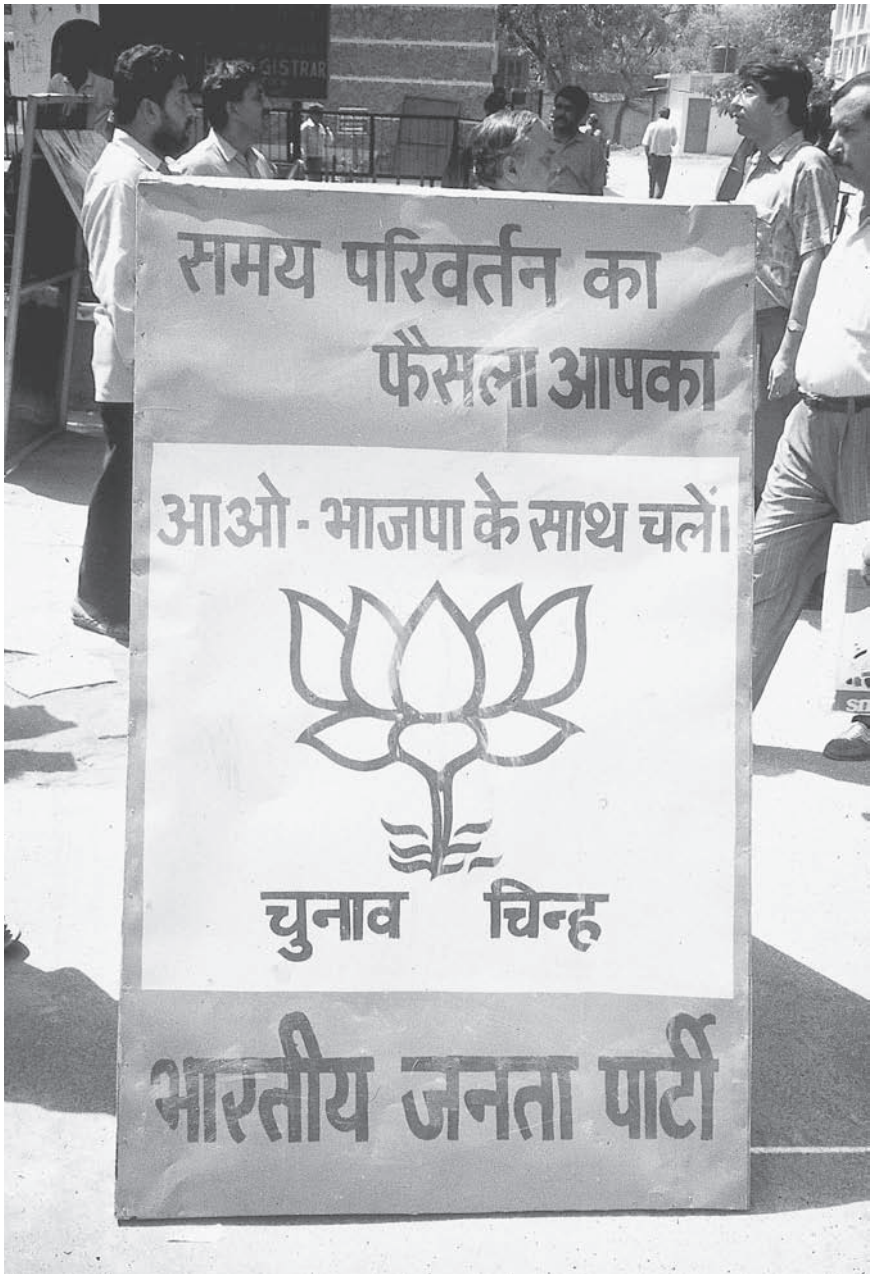 GISTRAR
समय परिवर्तन का
फैसला आपका
आओ - भाजपा के साथ चलें।
चुनाव चिन्ह
भारतीय जनता पार्टी